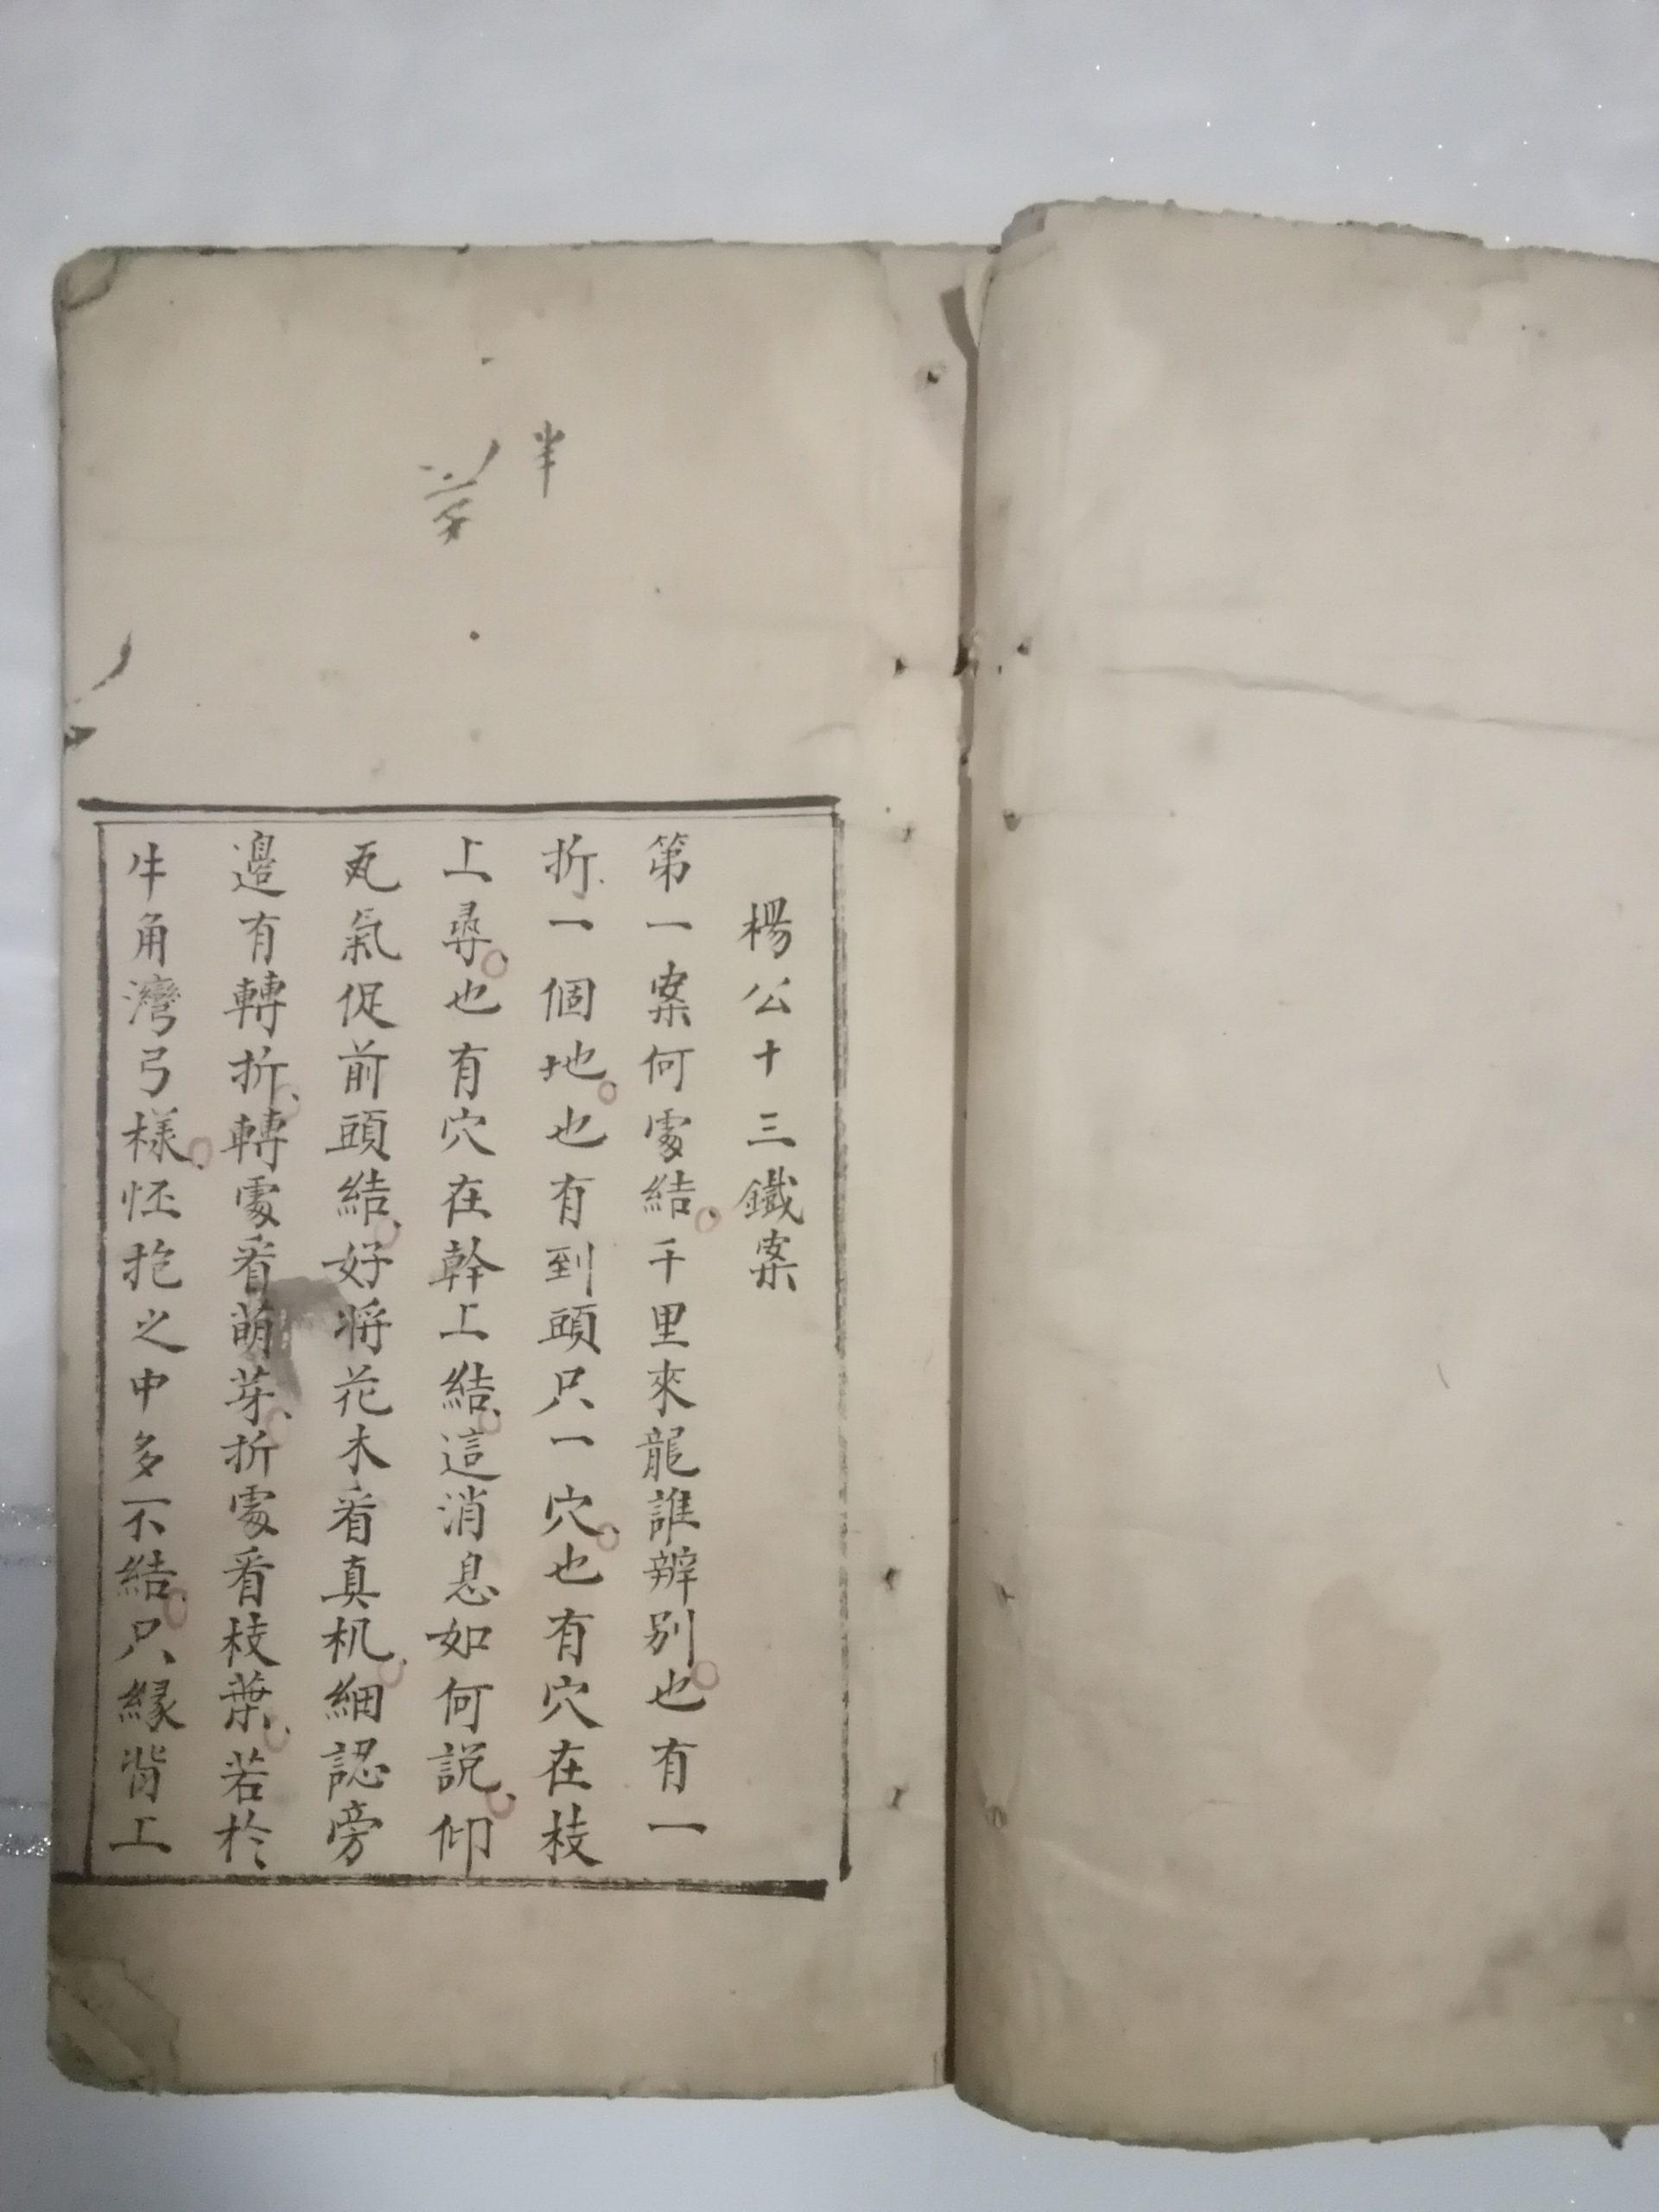 楊公十三鐵案
第一案何處結千里來龍誰辨別也有一
折一個地也有到頭只一穴也有穴在枝
上尋也有穴在幹上結這消息如何説仰
瓦氣促前頭結好将花木看真机細認旁
邉有轉折轉處看萌芽折處看枝葉若於
牛角灣弓樣怌抱之中多不結只緣背上
半
芽